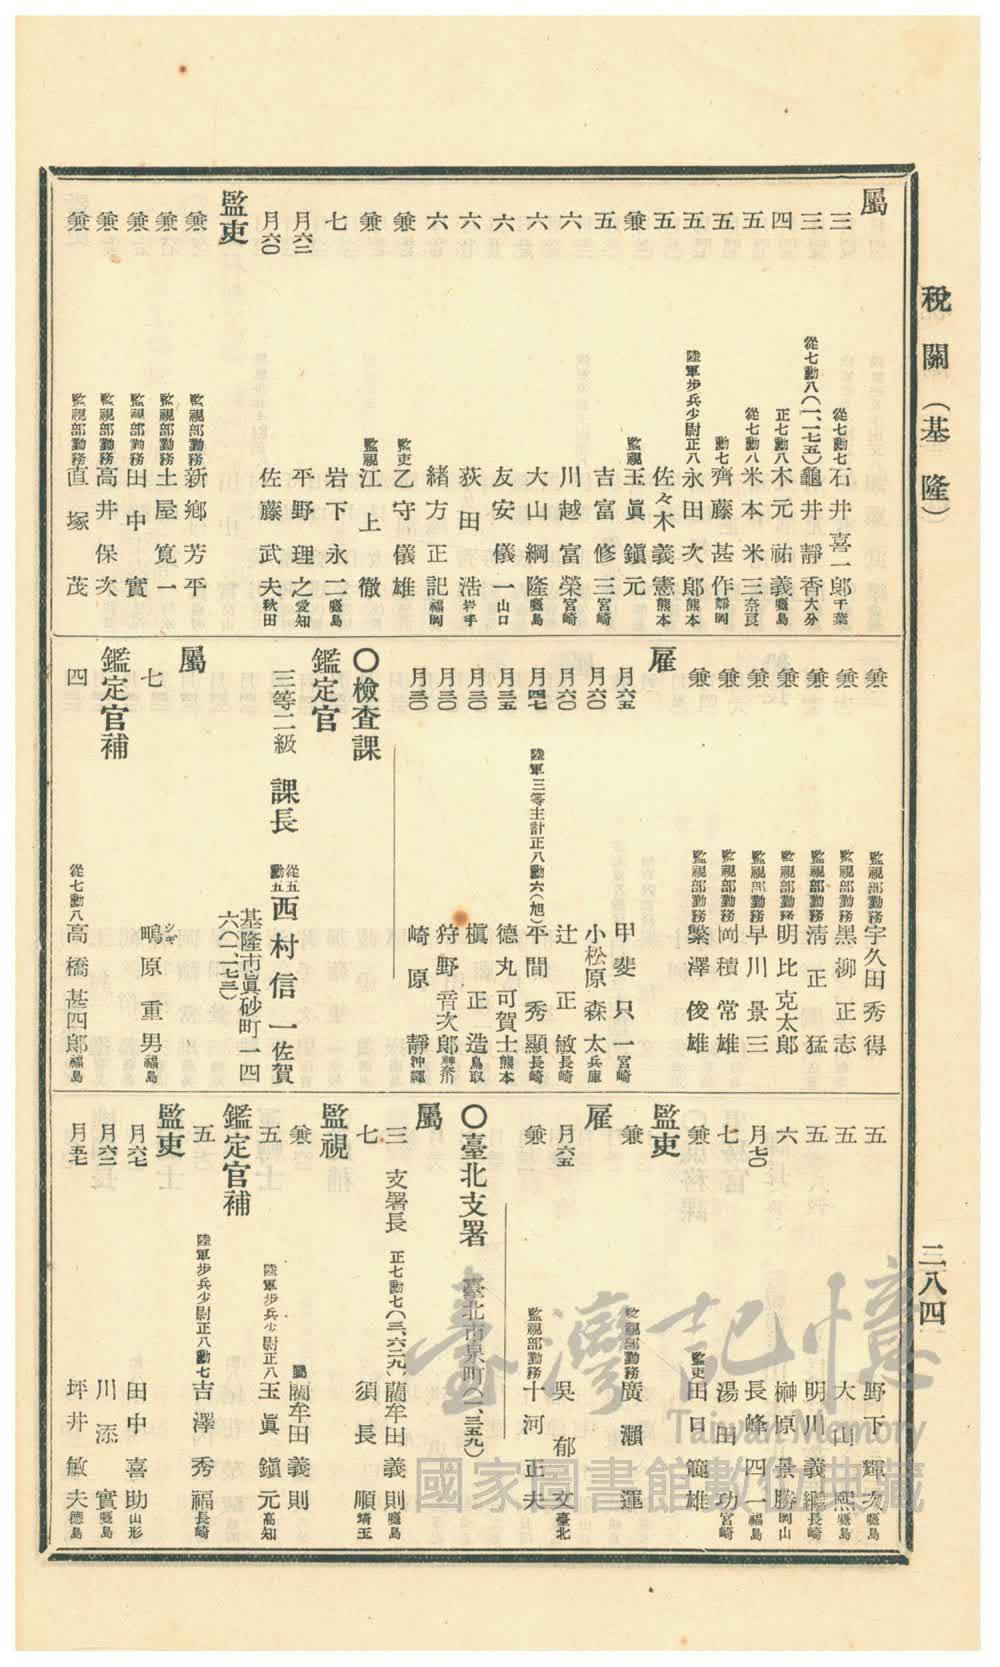 稅關（基隆）
二八四
屬
三 從七勳七 石井喜一郎 千葉
三 從七勳八（一、一七五） 龜井靜香 大分
四 正七勳八 木元祐義 鹿島
五 從七勳八 米本米三 奈良
五 勳七 齊藤甚作 靜岡
五 陸軍步兵少尉正八 永田次郎 熊本
五 佐々木義憲 熊本
兼 監視 玉眞鎭元
五 吉富修三 宮崎
六 川越富榮 宮崎
六 大山綱隆 鹿島
六 友安儀一 山口
六 荻田浩 岩手
六 緒方正記 福岡
兼 監吏 乙守儀雄
兼 監視 江上徹
七 岩下永二 鹿島
月六二 平野理之 愛知
月六〇 佐藤武夫 秋田
監吏
兼 監視部勤務 新鄕芳平
兼 監視部勤務 土屋寬一
兼 監視部勤務 田中實
兼 監視部勤務 高井保次
兼 監視部勤務 直塚茂
兼 監視部勤務 宇久田秀得
兼 監視部勤務 黑柳正志
兼 監視部勤務 淸正猛
兼 監視部勤務 明比克太郎
兼 監視部勤務 早川景三
兼 監視部勤務 岡積常雄
兼 監視部勤務 繁澤俊雄
雇
月六五 甲斐只一 宮崎
月六〇 小松原森太 兵庫
月六〇 辻正敏 長崎
月四七 陸軍三等主計正八勳六（旭） 平間秀顯 長崎
月三五 德丸可賀士 熊本
月三〇 槇正造 鳥取
月三〇 狩野音次郎 神奈川
月三〇 崎原靜 沖繩
〇檢查課
鑑定官
三等二級 課長 從五勳五 西村信一 佐賀
基隆市眞砂町一四
六（一、一七三）
屬
七 鴫原重男 福島
シギ
鑑定官補
四 從七勳八 高橋甚四郎 福島
五 野下輝次 鹿島
五 大山熙 鹿島
五 明川義繼 長崎
六 榊原景勝 岡山
月七〇 長峰四一 福島
七 湯田功 宮崎
兼 監吏 田日範雄
監吏
兼 監視部勤務 廣瀨運
雇
月六五 吳郁文 臺北
兼 監視部勤務 十河正夫
〇臺北支署 臺北市泉町（一、三五九）
屬
三 支署長 正七勳七（三、六二九） 藺牟田義則 鹿島
七 須長順 埼玉
監視
兼 屬 藺牟田義則
五 陸軍步兵少尉正八 玉眞鎭元 高知
鑑定官補
五 陸軍步兵少尉正八勳七 吉澤秀福 長崎
監吏
月六七 田中喜助 山形
月六二 川添實 鹿島
月五七 坪井敏夫 德島
臺灣記憶
Taiwan Memory
國家圖書館數位典藏